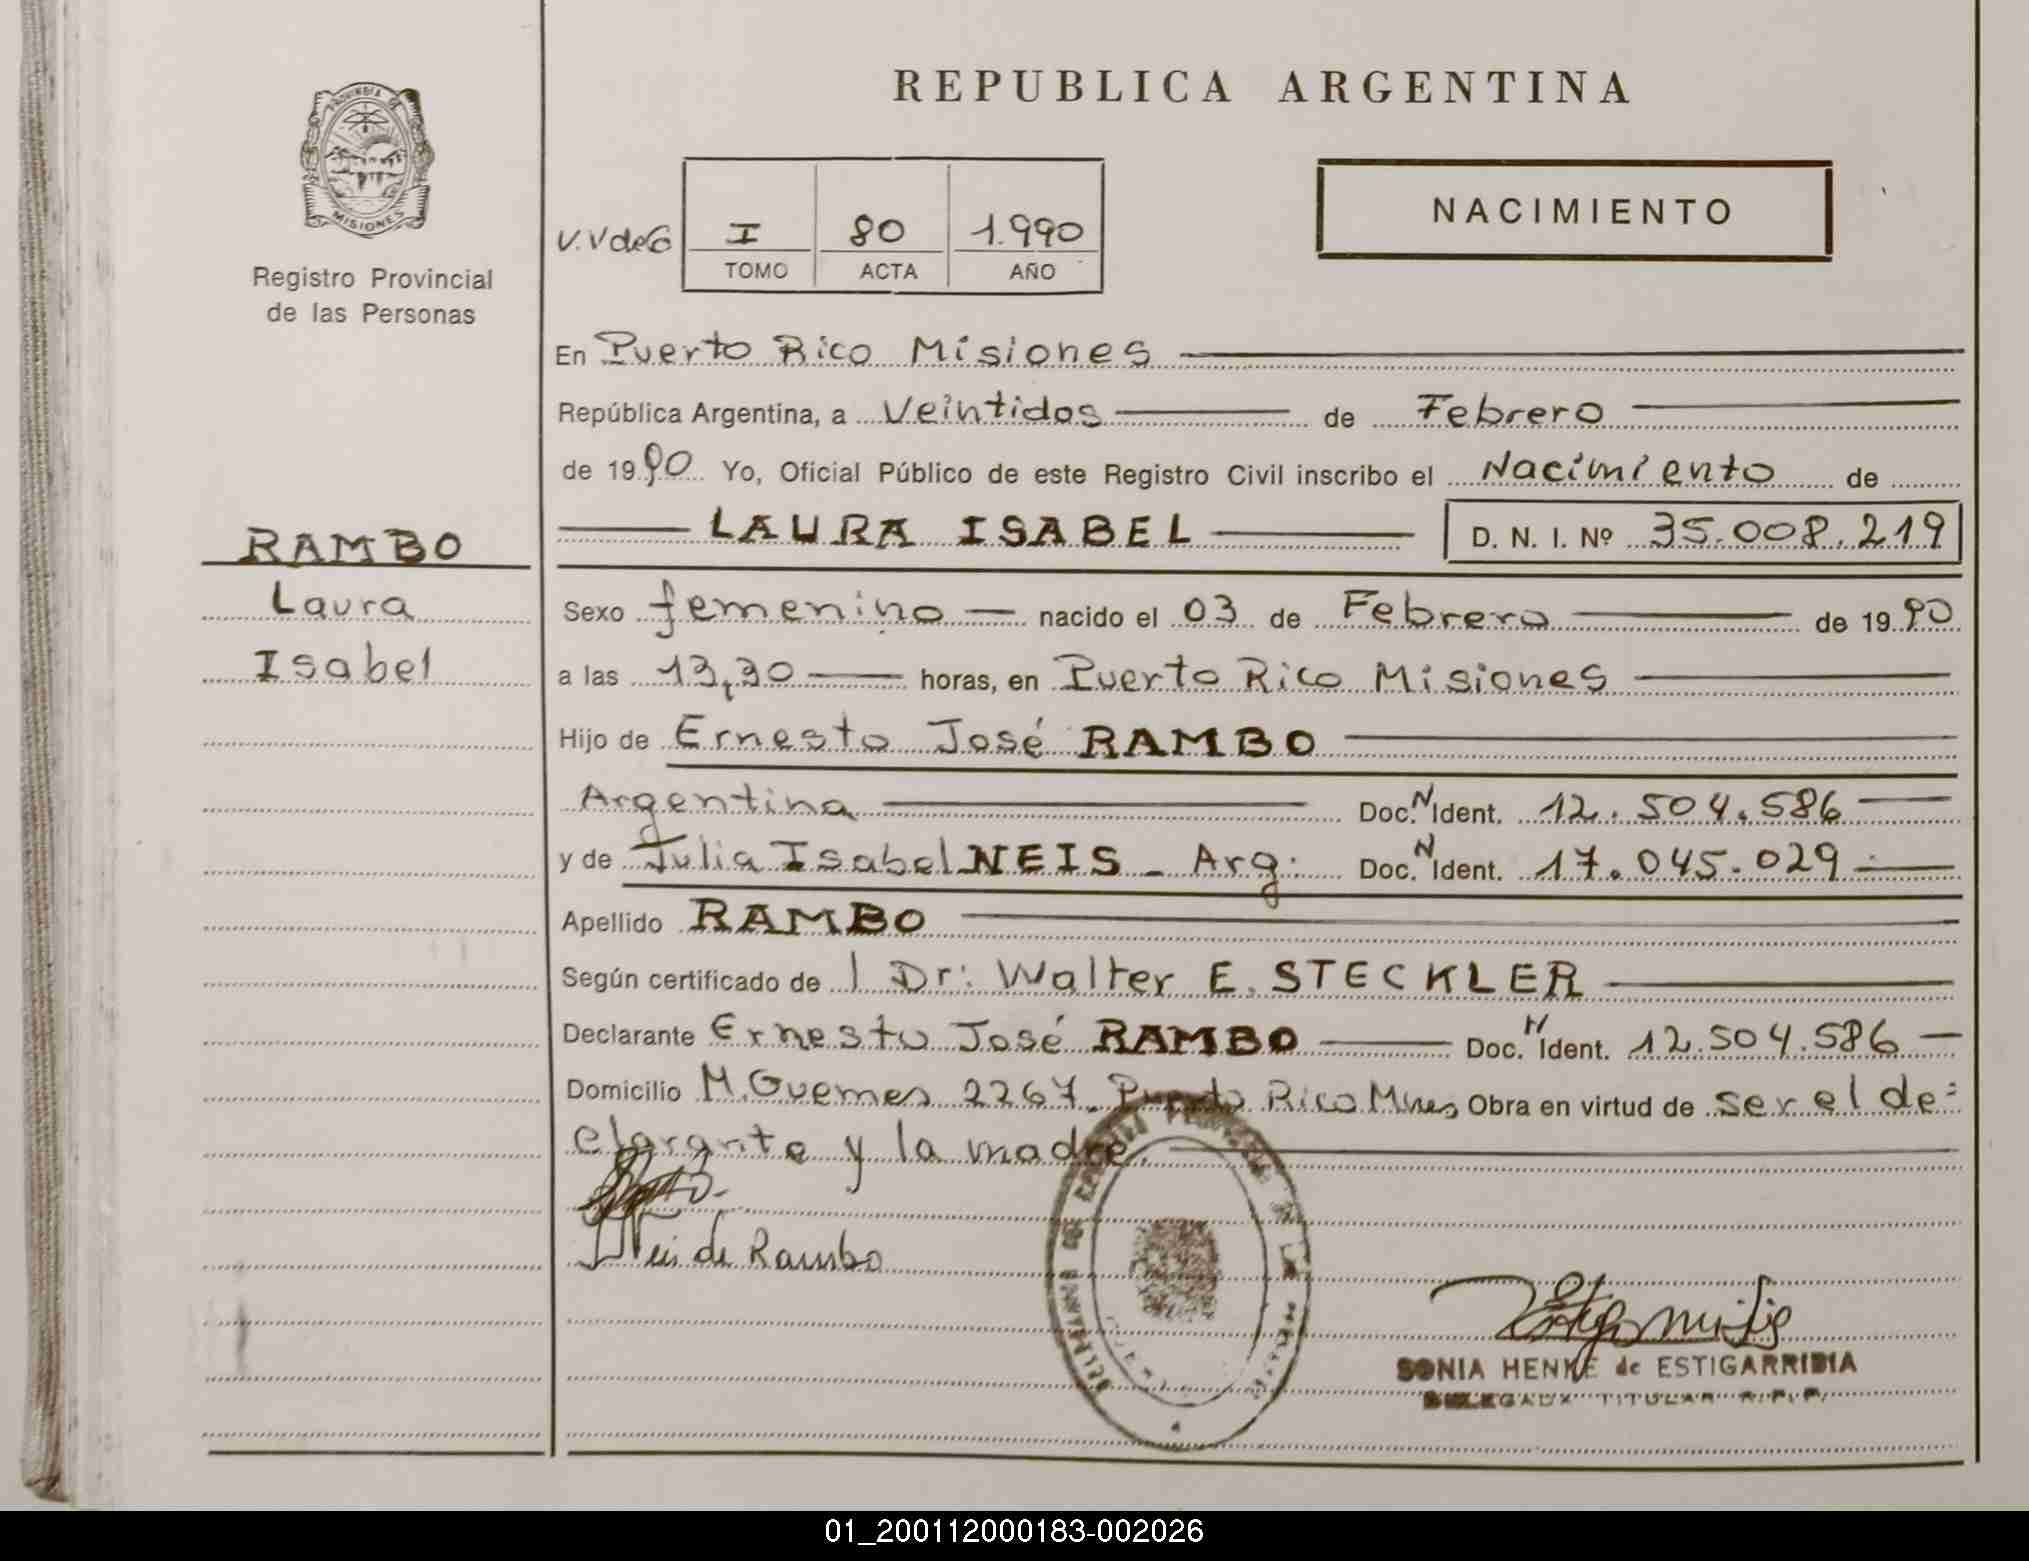 REPUBLICA ARGENTINA
PROVINCIA DE
MISIONES
Registro Provincial
de las Personas
V.V de G
I 80 1.990
TOMO ACTA AÑO
NACIMIENTO
En Puerto Rico Misiones
República Argentina, a Veintidos de Febrero
de 1990 Yo, Oficial Público de este Registro Civil inscribo el Nacimiento de
LAURA ISABEL D. N. I. Nº 35.008.219
RAMBO
Laura
Isabel
Sexo femenino nacido el 03 de Febrero de 1990
a las 13,30 horas, en Puerto Rico Misiones
Hijo de Ernesto José RAMBO
Argentina Doc. N Ident. 12.504.586
y de Julia Isabel NEIS - Arg: Doc. N Ident. 17.045.029
Apellido RAMBO
Según certificado de l Dr: Walter E. STECKLER
Declarante Ernesto José RAMBO Doc. N Ident. 12.504.586
Domicilio M. Guemes 2267. Puerto Rico Mnes Obra en virtud de ser el de=
clarante y la madre.
Neis de Rambo
SONIA HENKE de ESTIGARRIBIA
TITULAR R.P.P.
01_200112000183-002026